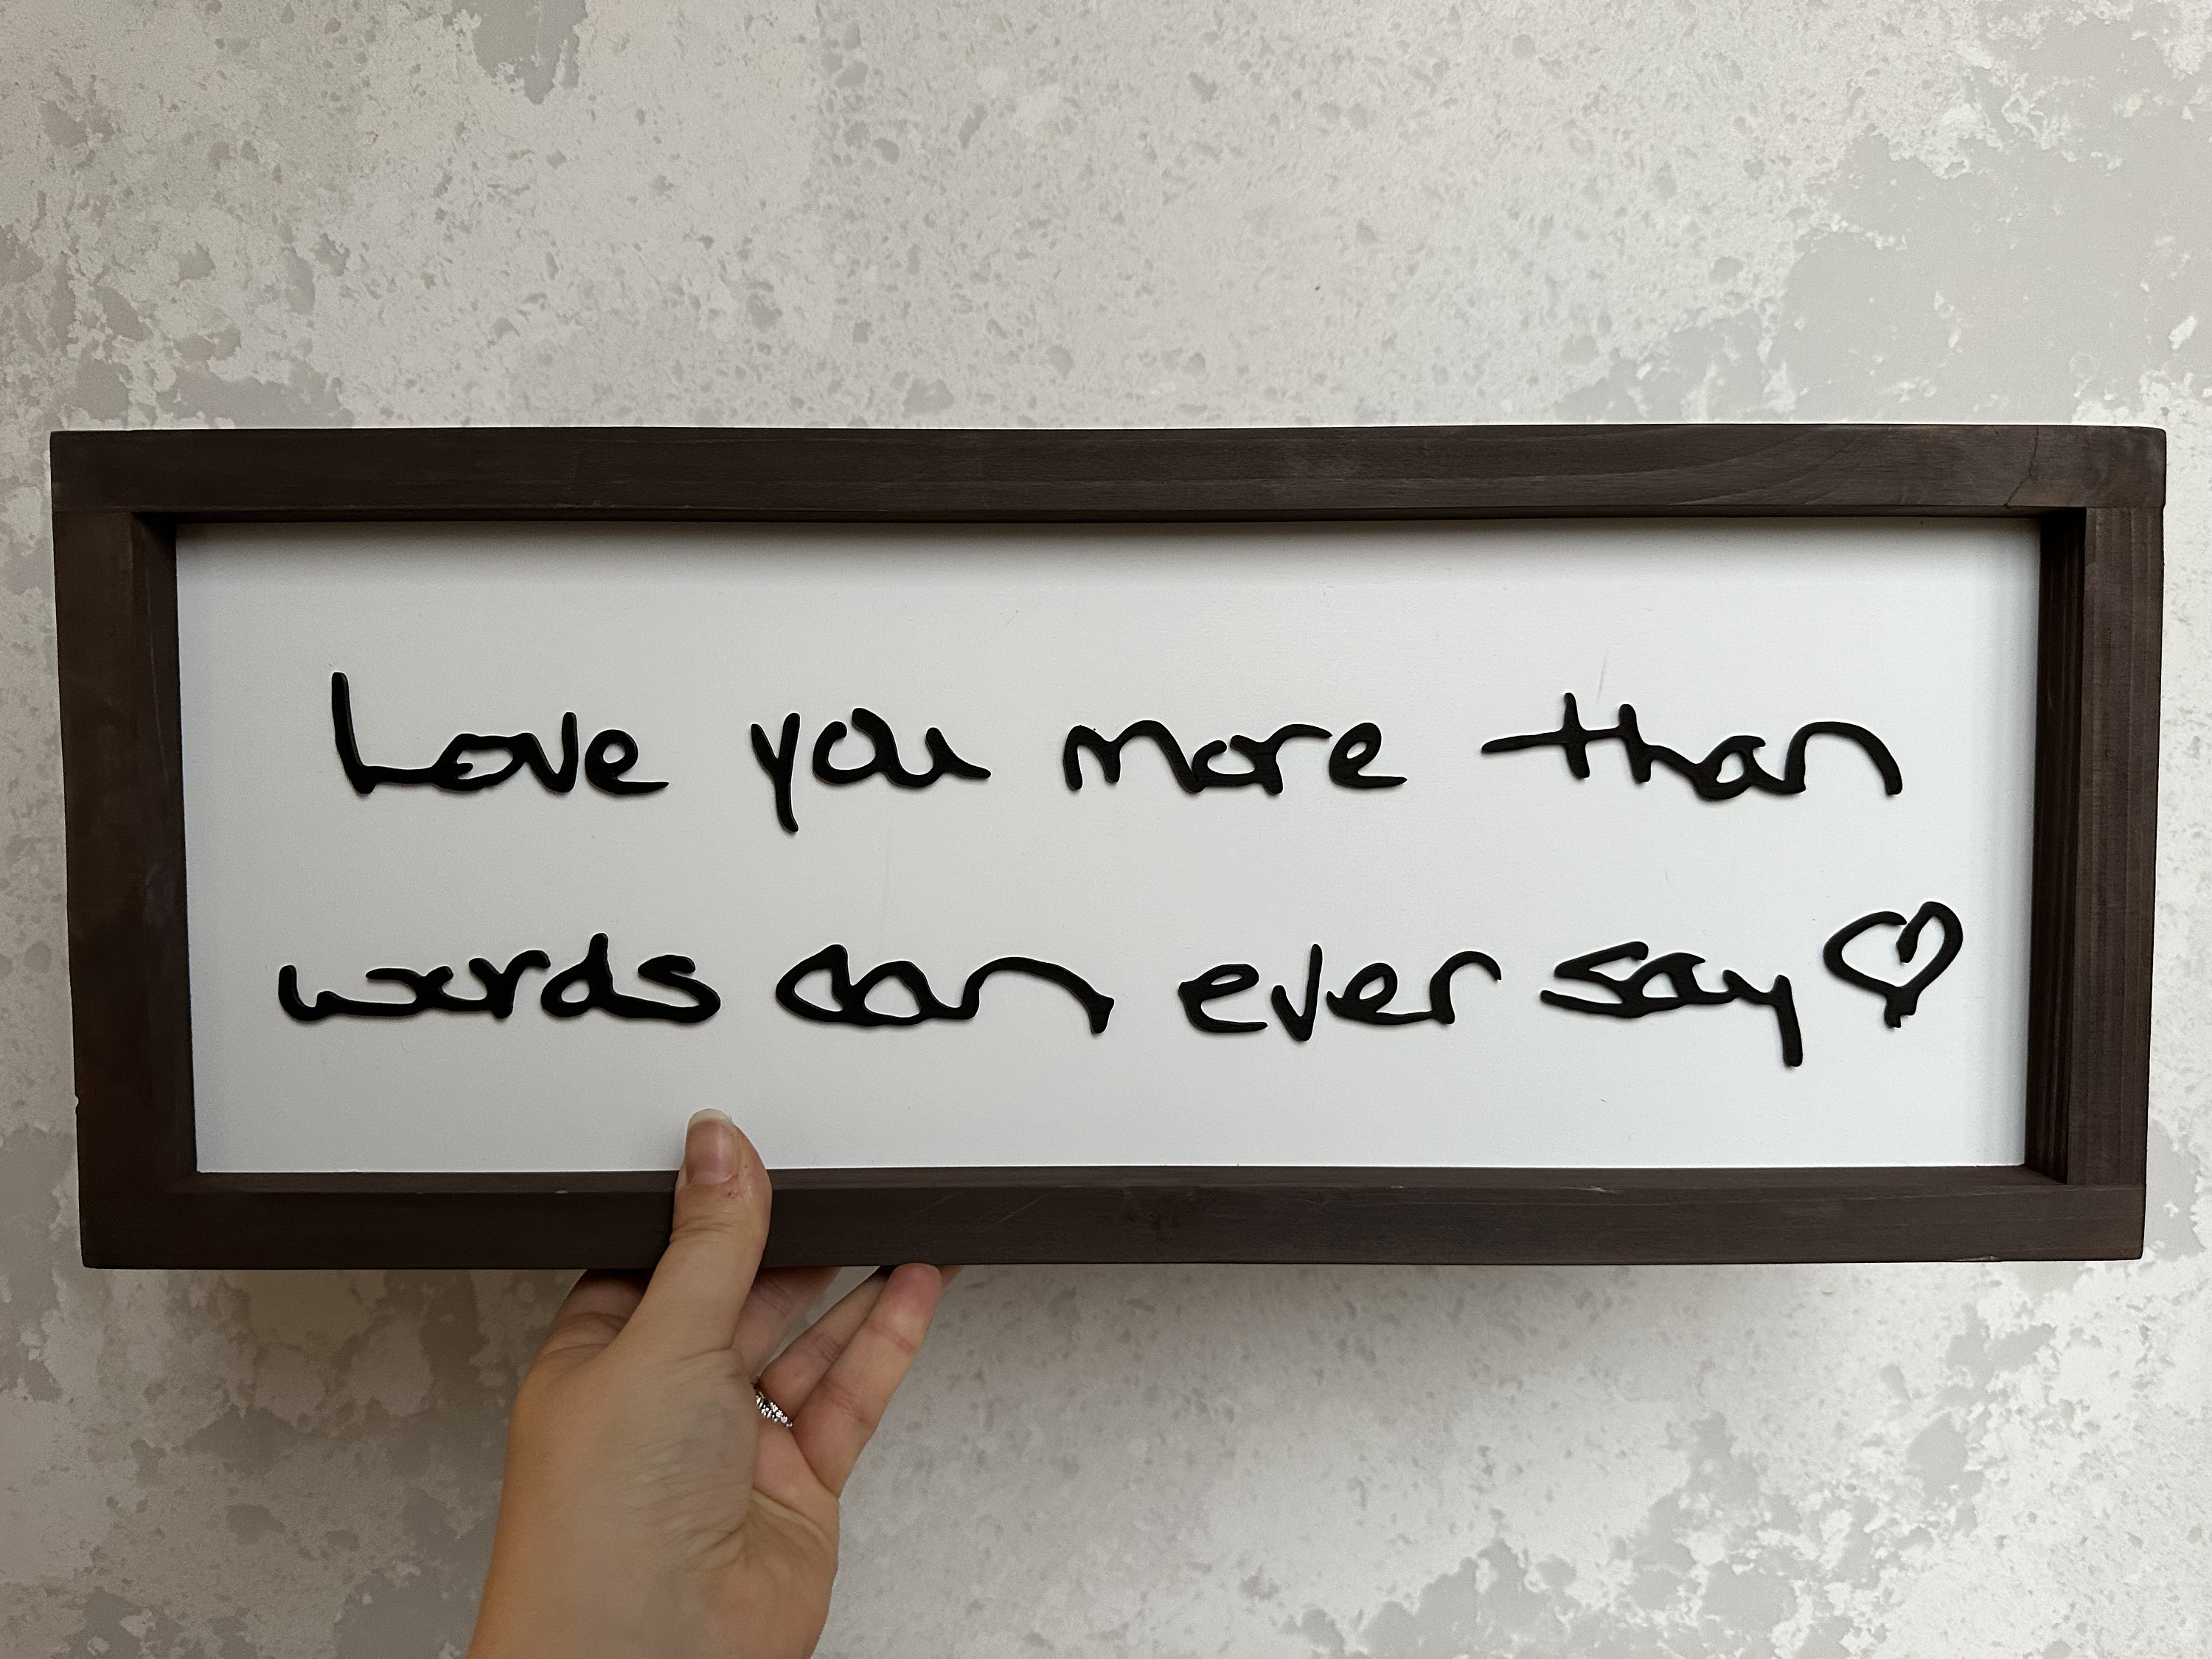 Love you more than
words can ever say♡